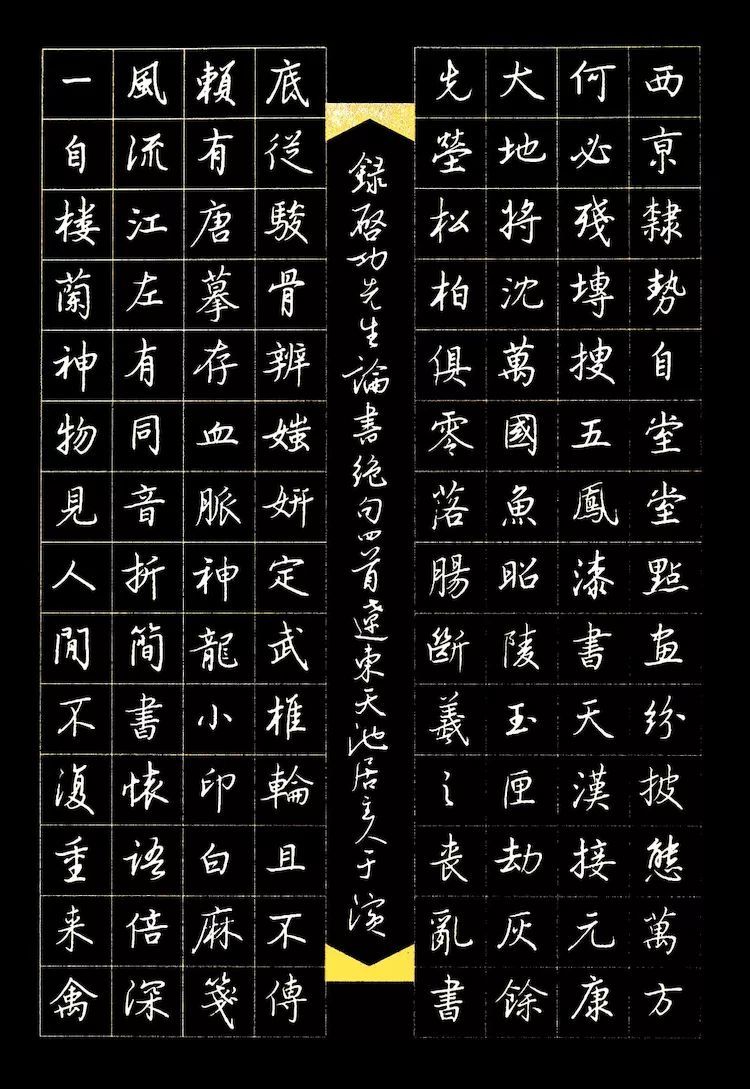 西亰隸勢自堂堂點畫紛披態萬方
何必殘塼搜五鳳漆書天漢接元康
大地將沈萬國魚昭陵玉匣劫灰餘
先塋松柏俱零落腸斷羲之喪亂書
録啓功先生論書絕句四首遼東天池居主人于
底從駿骨辨媸妍定武椎輪且不傳
賴有唐摹存血脈神龍小印白麻箋
風流江左有同音折簡書懐語倍深
一自楼蘭神物見人間不復重来禽